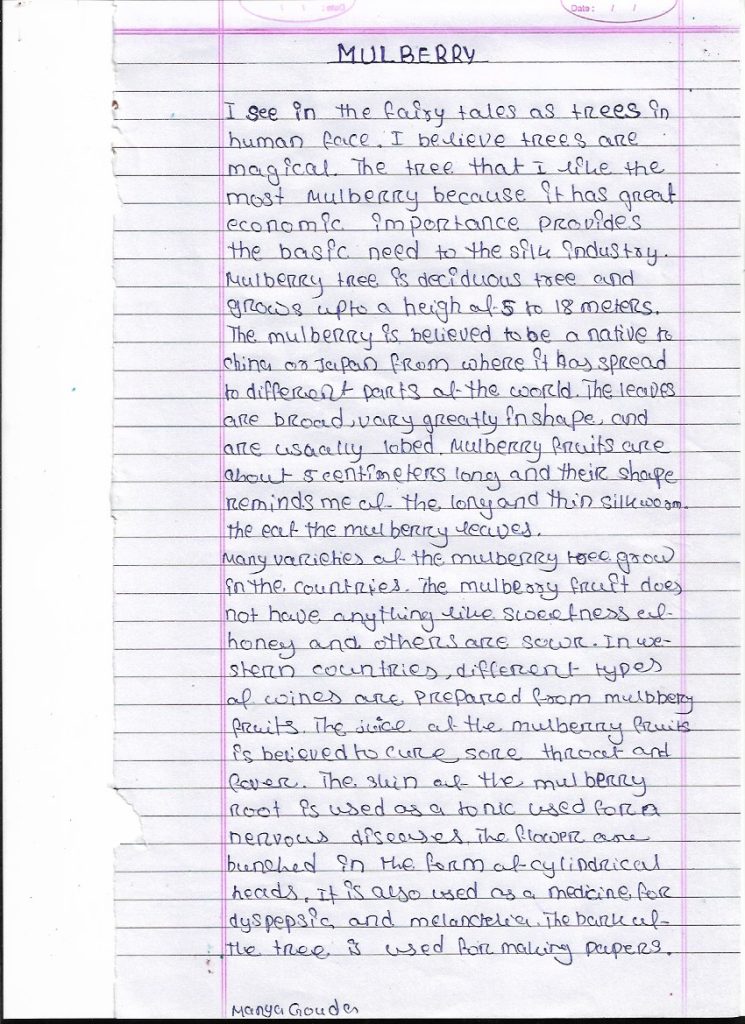 Date: / /
MULBERRY
I see in the fairy tales as trees in
human face. I believe trees are
magical. The tree that I like the
most Mulberry because it has great
economic importance provides
the basic need to the silk industry.
Mulberry tree is deciduous tree and
grows upto a heigh of 5 to 18 meters.
The mulberry is believed to be a native to
china or Japan from where it has spread
to different parts of the world. The leaves
are broad, vary greatly in shape, and
are usually lobed. Mulberry fruits are
about 5 centimeters long and their shape
reminds me of the long and thin silkworm.
the eat the mulberry leaves.
Many varieties of the mulberry tree grow
in the countries. The mulberry fruit does
not have anything like sweetness of
honey and others are sour. In we-
stern countries, different types
of wines are prepared from mulbbery
fruits. The juice of the mulberry fruits
is believed to cure sore throat and
fever. The skin of the mulberry
root is used as a tonic used for a
nervous diseases. The flower are
bunched in the form of cylindrical
heads. It is also used as a medicine for
dyspepsia and melancholia. The bark of
the tree is used for making papers.
Manya Gouder